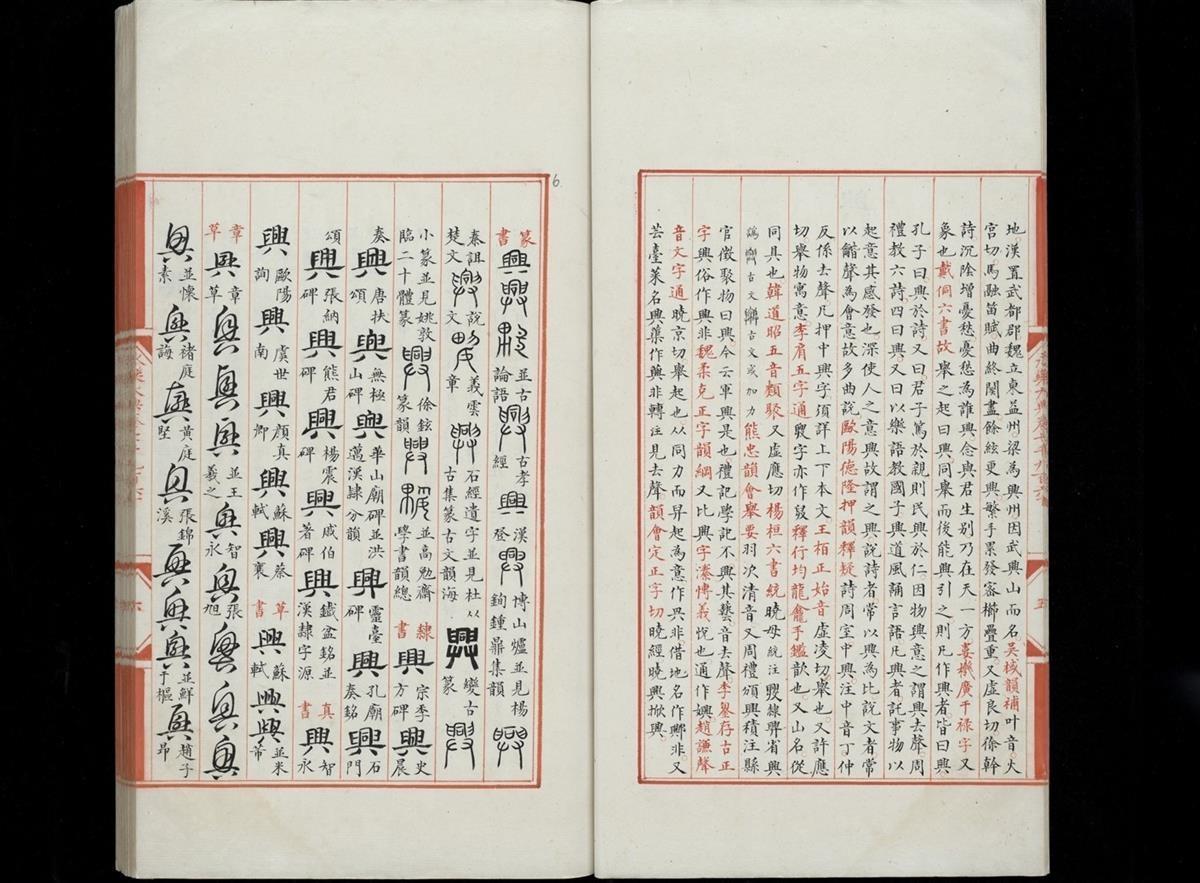 地漢置武都郡魏立東益州梁為興州因武興山而名吳棫韻補叶音火
宮切馬融笛賦曲終闋盡餘絃更興繁手累發密櫛疊重又虛良切徐幹
詩沉陰增憂愁憂愁為誰興念與君生別乃在天一方婁機廣干祿字又
象也戴侗六書故舉之起曰興同舉而後能興引之則凡作興者皆曰興
孔子曰興於詩又曰君子篤於親則民興於仁因物興意之謂興去聲周
禮教六詩四曰興又曰以樂語教國子興道諷誦言語凡興者託事物以
起意其感發也深使人之意興故謂之興說詩者常以興為比說文者常
以龤聲為會意故多曲說歐陽德隆押韻釋疑詩周室中興注中音丁仲
反係去聲凡押中興字須詳上下本文王柏正始音虛凌切舉也又許應
切舉物寓意李肩五字通字亦作釋行均龍龕手鑑歆也又山名從
同具也韓道昭五音類聚又虛應切楊桓六書統曉母統注隸興省興
古文古文或加力熊忠韻會舉要羽次清音又周禮頒興積注縣
官徵聚物曰興今云軍興是也禮記學記不興其藝音去聲李存古正
字興俗作非魏柔克正字韻綱又比興字溱博義悅也通作嬹趙謙聲
音文字通曉京切舉起也从同力而昇起為意作非借地名作非又
芸臺菜名興蕖作非轉注見去聲韻會定正字切曉經曉興掀興
五
6
篆書興興興並古論語興古孝經興漢登興博山爐並見楊鉤鍾鼎集韻興
秦詛楚文興說文興義雲章興石經遺字並見杜从古集篆古文韻海興變古篆興
小篆並見姚敦臨二十體篆興徐鉉篆韻興興並高勉齋學書韻總隸書興宗季方碑興史晨
奏興唐扶頌興無極山碑興華山廟碑並洪邁漢隸分韻興靈臺碑興孔廟奏銘興石門
頌興張納碑興熊君碑興楊震碑興戚伯著碑興鐵盆銘並漢隸字源真書興智永
興歐陽詢興虞世南興顏真卿興蘇軾興蔡襄草書興蘇軾興興並米芾
章草興章草興興興並王羲之興智永興張旭興興興
興並懷素興褚庭誨興黃庭堅興張錦溪興興興並鮮于樞興趙子昂
六